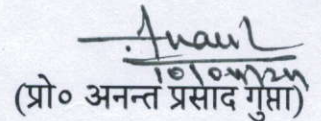 10/04/24
(प्रो० अनन्त प्रसाद गुप्ता)